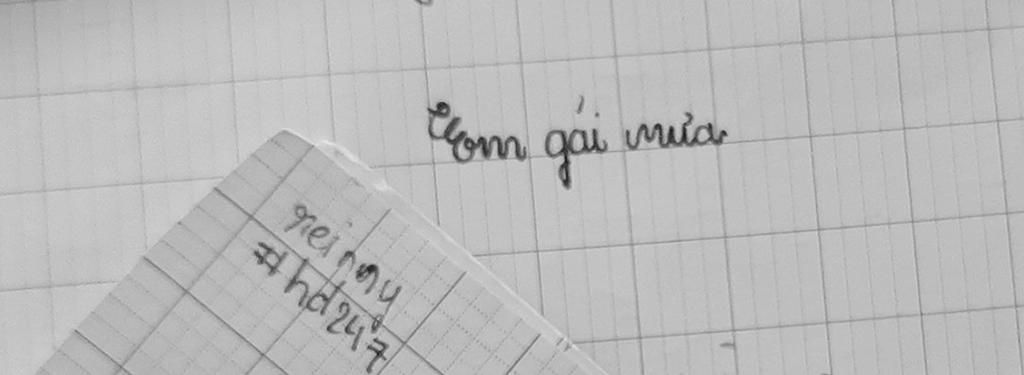 Com gái mưa
reinny
#hd247